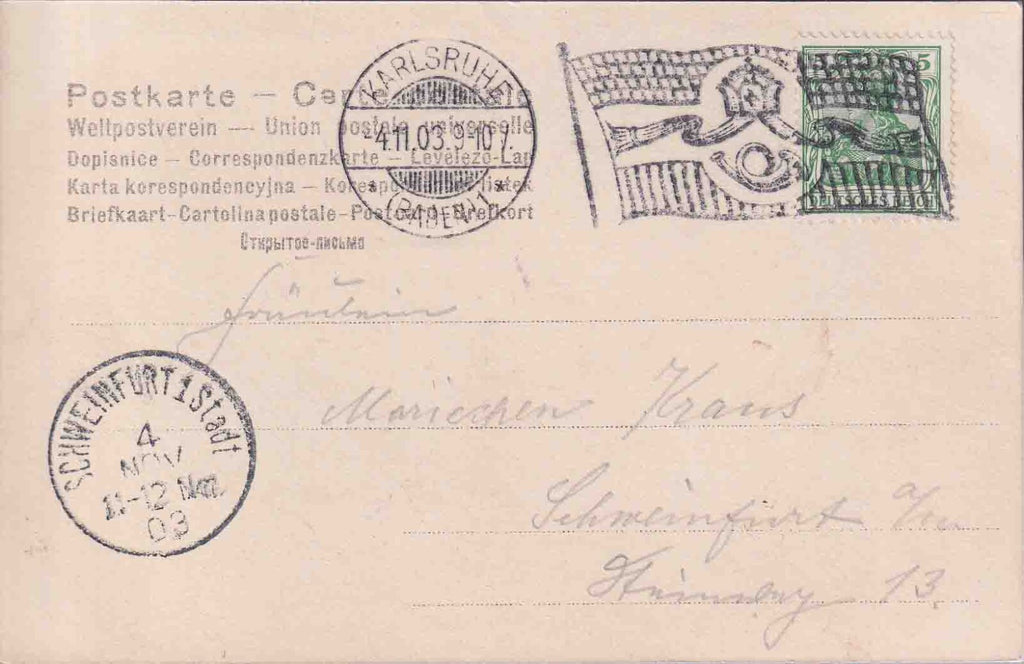 Postkarte — Carte postale
Weltpostverein — Union postale universelle
Dopisnice — Correspondenzkarte — Levelező-Lap
Karta korespondencyjna — Korespo listek
Briefkaart-Cartolina postale-Postcard Brefkort
Открытое-письмо
KARLSRUHE
-4.11.03.9-10V.
* (BADEN) 1 *
5
DEUTSCHES REICH
Fräulein
Mariechen Kraus
Schweinfurt a/m
Steinweg 13.
SCHWEINFURT 1 Stadt
4
NOV
11-12 Nm.
03